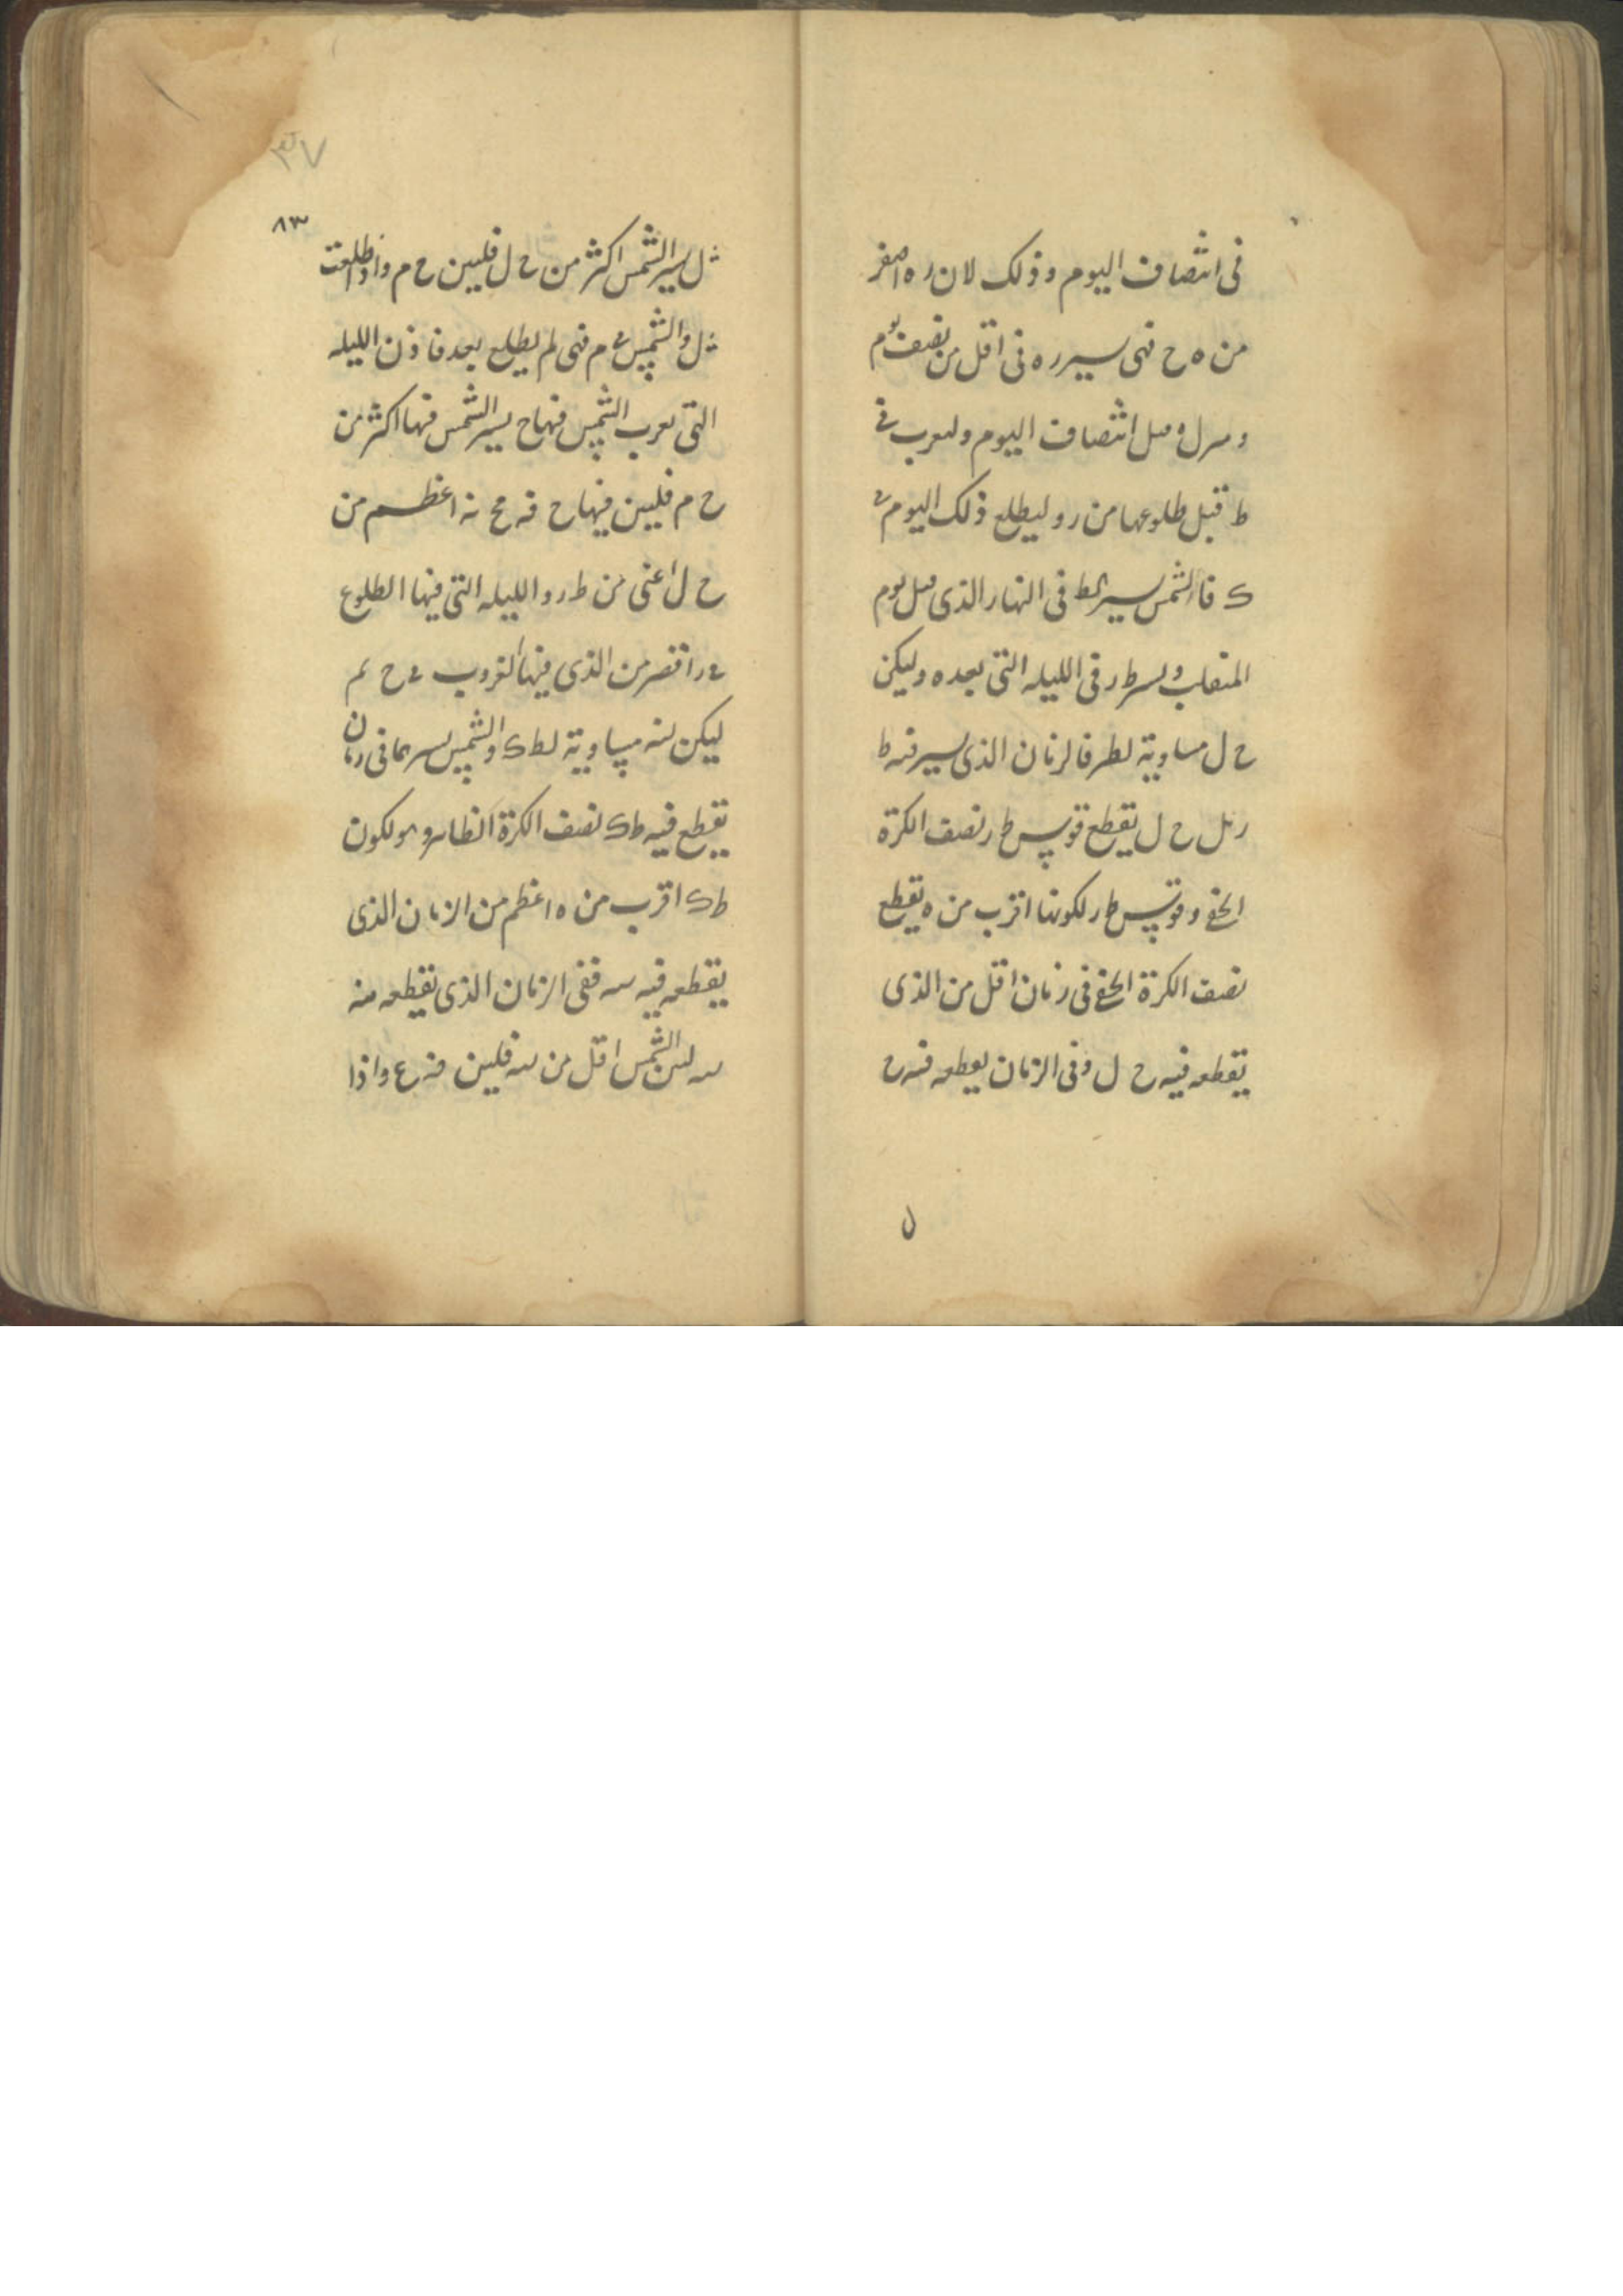 فى انتصاف اليوم وذلك لان ره اصغر
من ه ح فهى سير ره فى اقل من نصف يوم
انتصاف اليوم ولعرب فى
ط قبل طلوعها من ر وليطلع ذلك اليوم
ك فالشمس سير فى النهار الذى يوم
المنقلب ط ر فى الليله التى بعده وليكن
ح ل مساوية لطر فالزمان الذى يسير فيه ط
ر ح ل يقطع قوس ط ر نصف الكرة
الخفى وقوس ط ر لكونها اقرب من ه يقطع
نصف الكرة الخفى فى زمان اقل من الذى
يقطعه فيه ح ل وفى الزمان يعطعه فيه ح
ل
٣٧
٨٣
ل يسير الشمس اكثر من ح ل فليبين ح م واذا طلعت
ل والشمس م فهى لم يطلع بعد فاذن الليله
التى تعرب الشمس فيها ح يسير الشمس فيها اكثر من
ح م فليبين فيها ح اعظم من
ح ل اعنى من ط ر والليله التى فيها الطلوع
ر اقصر من الذى فيها الغروب ح م
ليكن مساوية لط ك والشمس فى زمان
يقطع فيه ط ك نصف الكرة الظاهر وهو لكون
ط ك اقرب من ه اعظم من الزمان الذى
يقطعه فيه سه ففى الزمان الذى يقطعه فيه
سه الشمس اقل من سه فليبن واذا